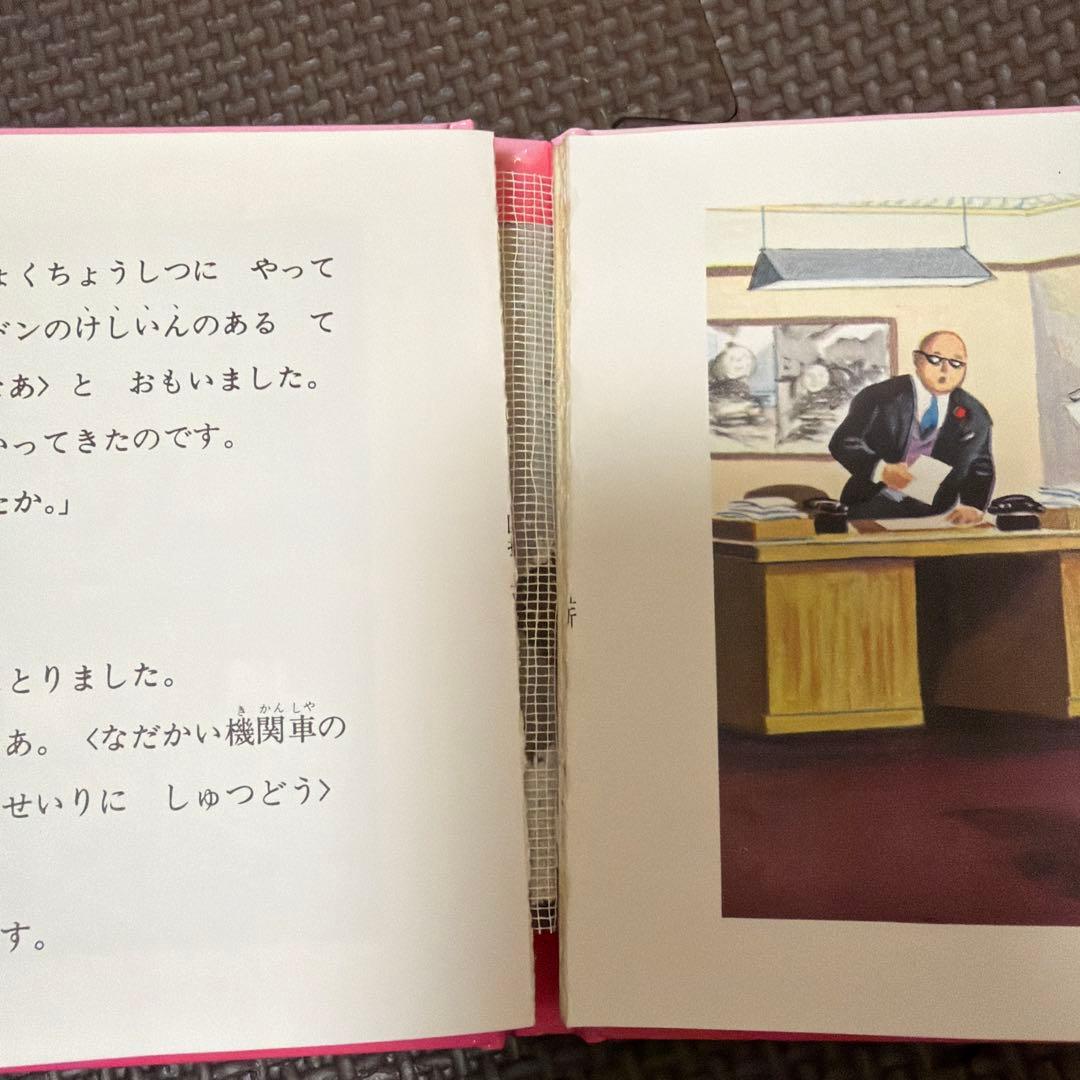 ょくちょうしつに　やって
ドンのけしいんのある　て
なあ〉と　おもいました。
いってきたのです。
たか。」
とりました。
あ。〈なだかい機関車の
せいりに　しゅつどう〉
す。